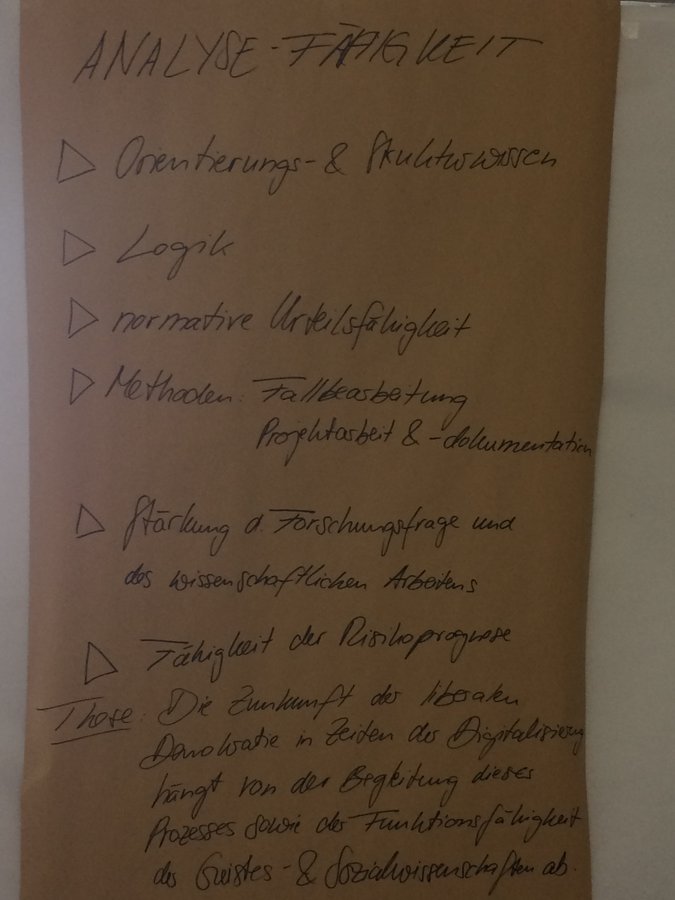 ANALYSE-FÄHIGKEIT
Orientierungs- & Strukturwissen
Logik
normative Urteilsfähigkeit
Methoden: Fallbearbeitung
Projektarbeit & -dokumentation
Stärkung d. Forschungsfrage und
des wissenschaftlichen Arbeitens
Fähigkeit der Risikoprognose
These: Die Zunkunft der liberalen
Demokratie in Zeiten der Digitalisierung
hängt von der Begleitung dieses
Prozesses sowie der Funktionsfähigkeit
der Geistes- & Sozialwissenschaften ab.